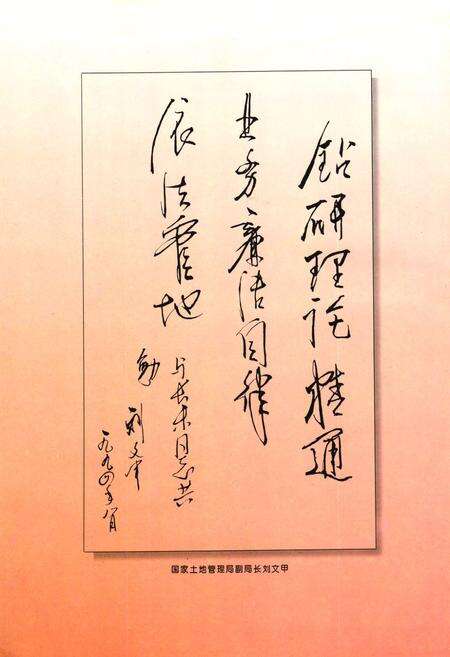 钻研理论精通
业务廉洁自律
依法管地
与长来同志共
勉
刘文甲
一九九四年八月
国家土地管理局副局长刘文甲